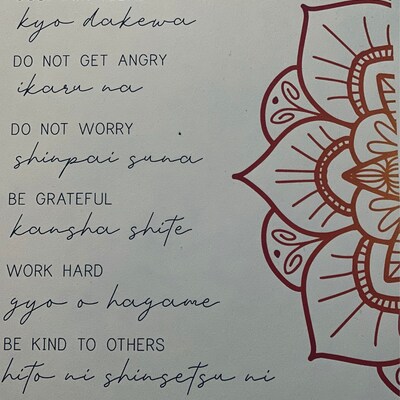 kyo dakewa
DO NOT GET ANGRY
ikaru na
DO NOT WORRY
shinpai suna
BE GRATEFUL
kansha shite
WORK HARD
gyo o hagame
BE KIND TO OTHERS
hito ni shinsetsu ni